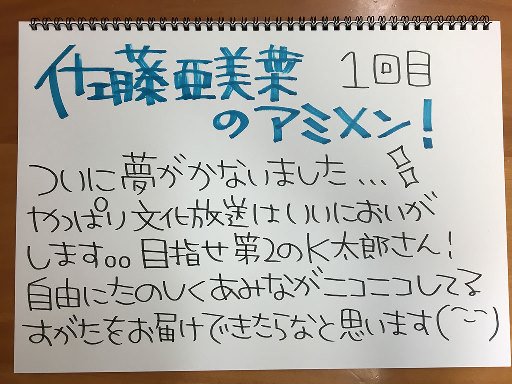 佐藤亜美菜 1回目
のアミメン!
ついに夢がかないました...
やっぱり文化放送はいいにおいが
します。。目指せ第2のK太郎さん!
自由にたのしくあみながニコニコしてる
すがたをお届けできたらなと思います(^-^)